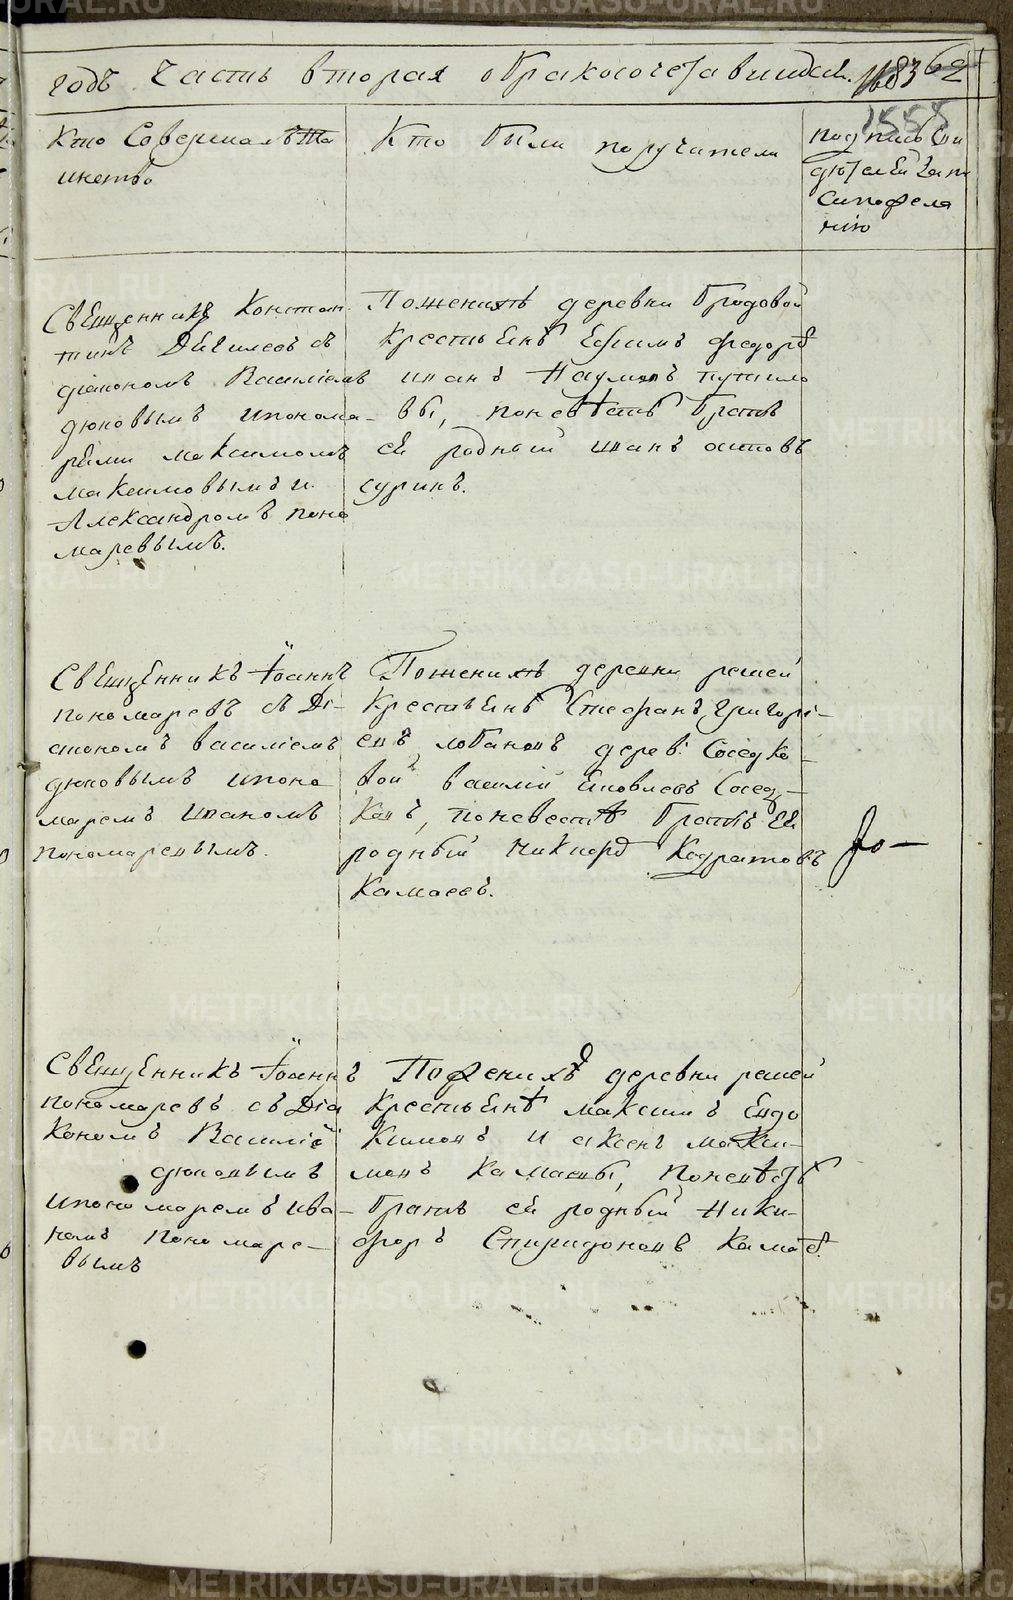 годъ Часть вторая обракосочетавшихся. 1183 62
1558
Кто Совершалъ Та
инство
Кто были поручатели
подпись Сви
дѣтелей запи
Си пожела
нію
Свещенникъ Констан
тинъ с
діакономъ Василіемъ
дюковымъ ипонома-
рями максимомъ
максимовымъ и
Александромъ поно
маревымъ.
Поженихѣ деревни бродовой
Крестьянѣ Ефимъ федоровъ
иванъ Наумовъ путило
вы, поневѣстѣ братъ
ей родный иванъ
суринъ.
Свещенникъ Іоаннъ
пономаревъ съ Ді-
акономъ василіемъ
дюковымъ ипоно
маремъ иваномъ
пономаревымъ.
Поженихѣ деревни решей
Крестьянѣ Стефанъ григорі-
евъ лобановъ дерев: Соседко-
вой василій Яковлевъ Сосед-
ковъ, поневестѣ братъ ей
родный никифоръ Кодратовъ
Камаевъ.
Свещенникъ Іоаннъ
пономаревъ съ Діа
кономъ Василіе
дюковымъ
ипономаремъ ива-
номъ пономаре-
вымъ
Поженихѣ деревни решей
Крестьянѣ максимъ Евдо
кимовъ и максі-
мовъ Камаевы, поневѣстѣ
братъ ей родный Ники-
форъ Спиридоновъ Камаевъ.
METRIKI.GASO-URAL.RU